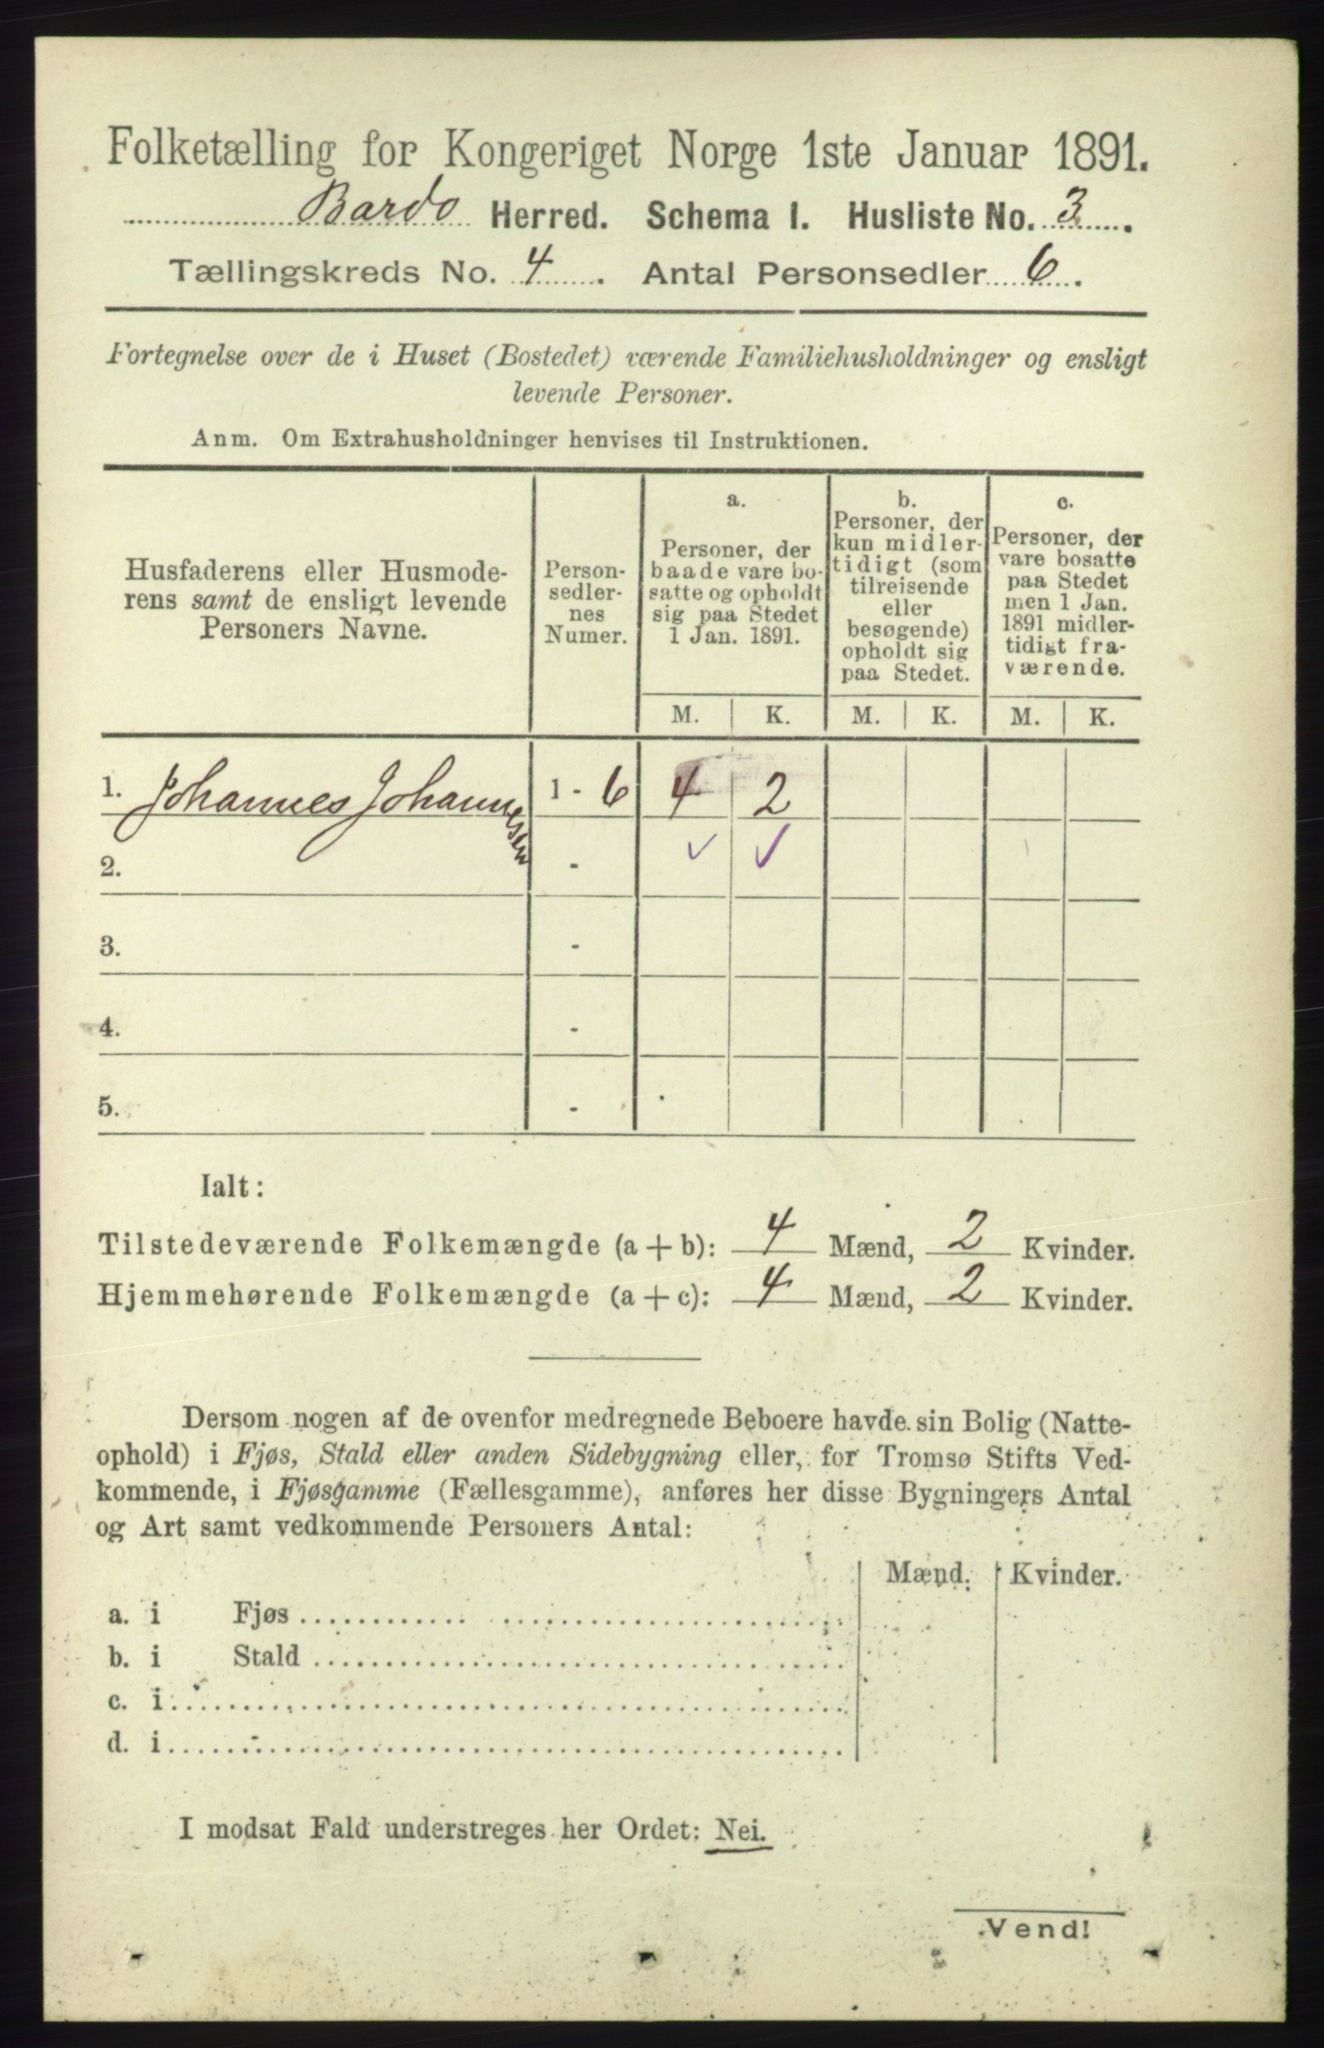 Folketælling for Kongeriget Norge 1ste Januar 1891.
Bardo Herred. Schema I. Husliste No. 3.
Tællingskreds No. 4. Antal Personsedler 6.
Fortegnelse over de i Huset (Bostedet) værende Familiehusholdninger og ensligt
levende Personer.
Anm. Om Extrahusholdninger henvises til Instruktionen.
Husfaderens eller Husmode-
rens samt de ensligt levende
Personers Navne.
Person-
sedler-
nes
Numer.
a.
Personer, der
baade vare bo-
satte og opholdt
sig paa Stedet
1 Jan. 1891.
b.
Personer, der
kun midler-
tidigt (som
tilreisende
eller
besøgende)
opholdt sig
paa Stedet.
c.
Personer, der
vare bosatte
paa Stedet
men 1 Jan.
1891 midler-
tidigt fra-
værende.
M. K. M. K. M. K.
1. Johannes Johannesen 1 - 6 4 2
2. - ✓ ✓
3. -
4. -
5. -
Ialt:
Tilstedeværende Folkemængde (a + b): 4 Mænd, 2 Kvinder.
Hjemmehørende Folkemængde (a + c): 4 Mænd, 2 Kvinder.
Dersom nogen af de ovenfor medregnede Beboere havde sin Bolig (Natte-
ophold) i Fjøs, Stald eller anden Sidebygning eller, for Tromsø Stifts Ved-
kommende, i Fjøsgamme (Fællesgamme), anføres her disse Bygningers Antal
og Art samt vedkommende Personers Antal:
Mænd. Kvinder.
a. i Fjøs
b. i Stald
c. i
d. i
I modsat Fald understreges her Ordet: Nei.
Vend!